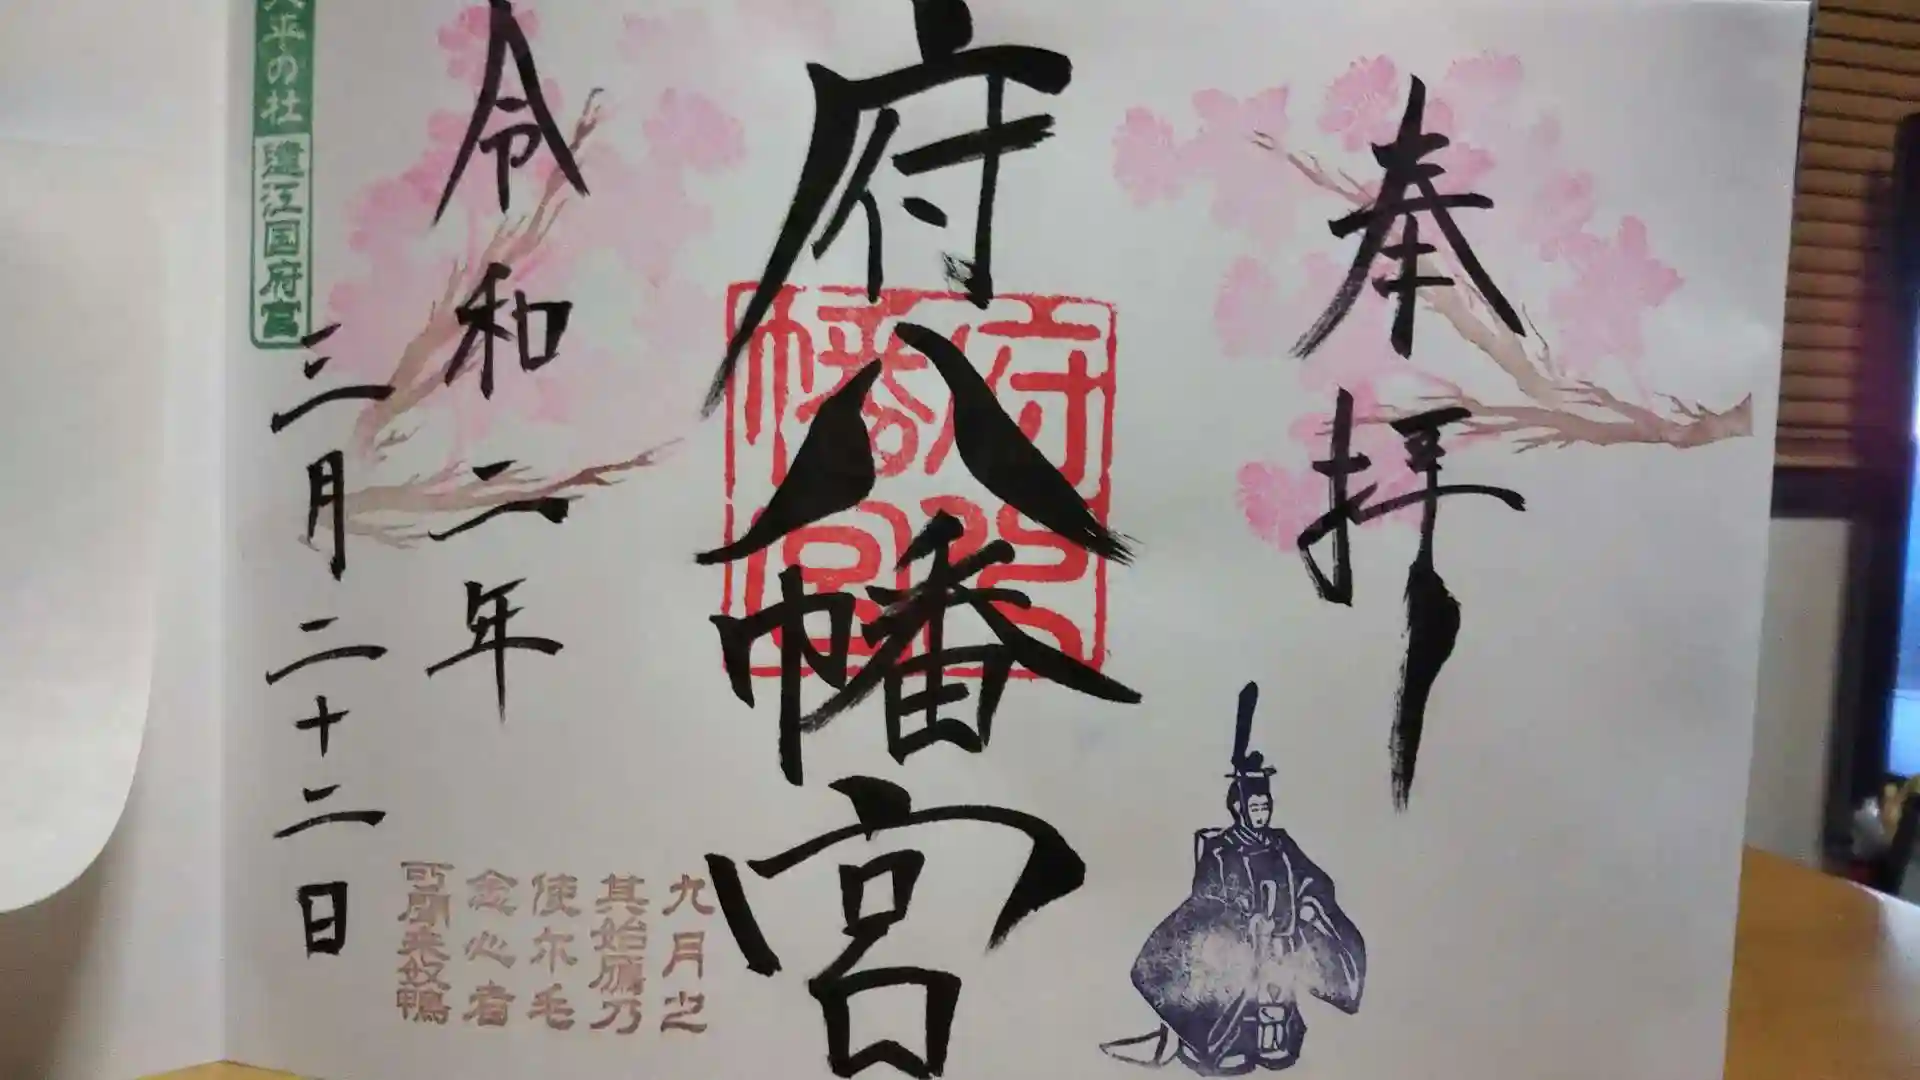 奉拝
府八幡宮
府八幡宮
九月之
其始鴈乃
使尓毛
念心者
可聞来奴鴨
令和二年
三月二十二日
天平の社
遠江国府宮